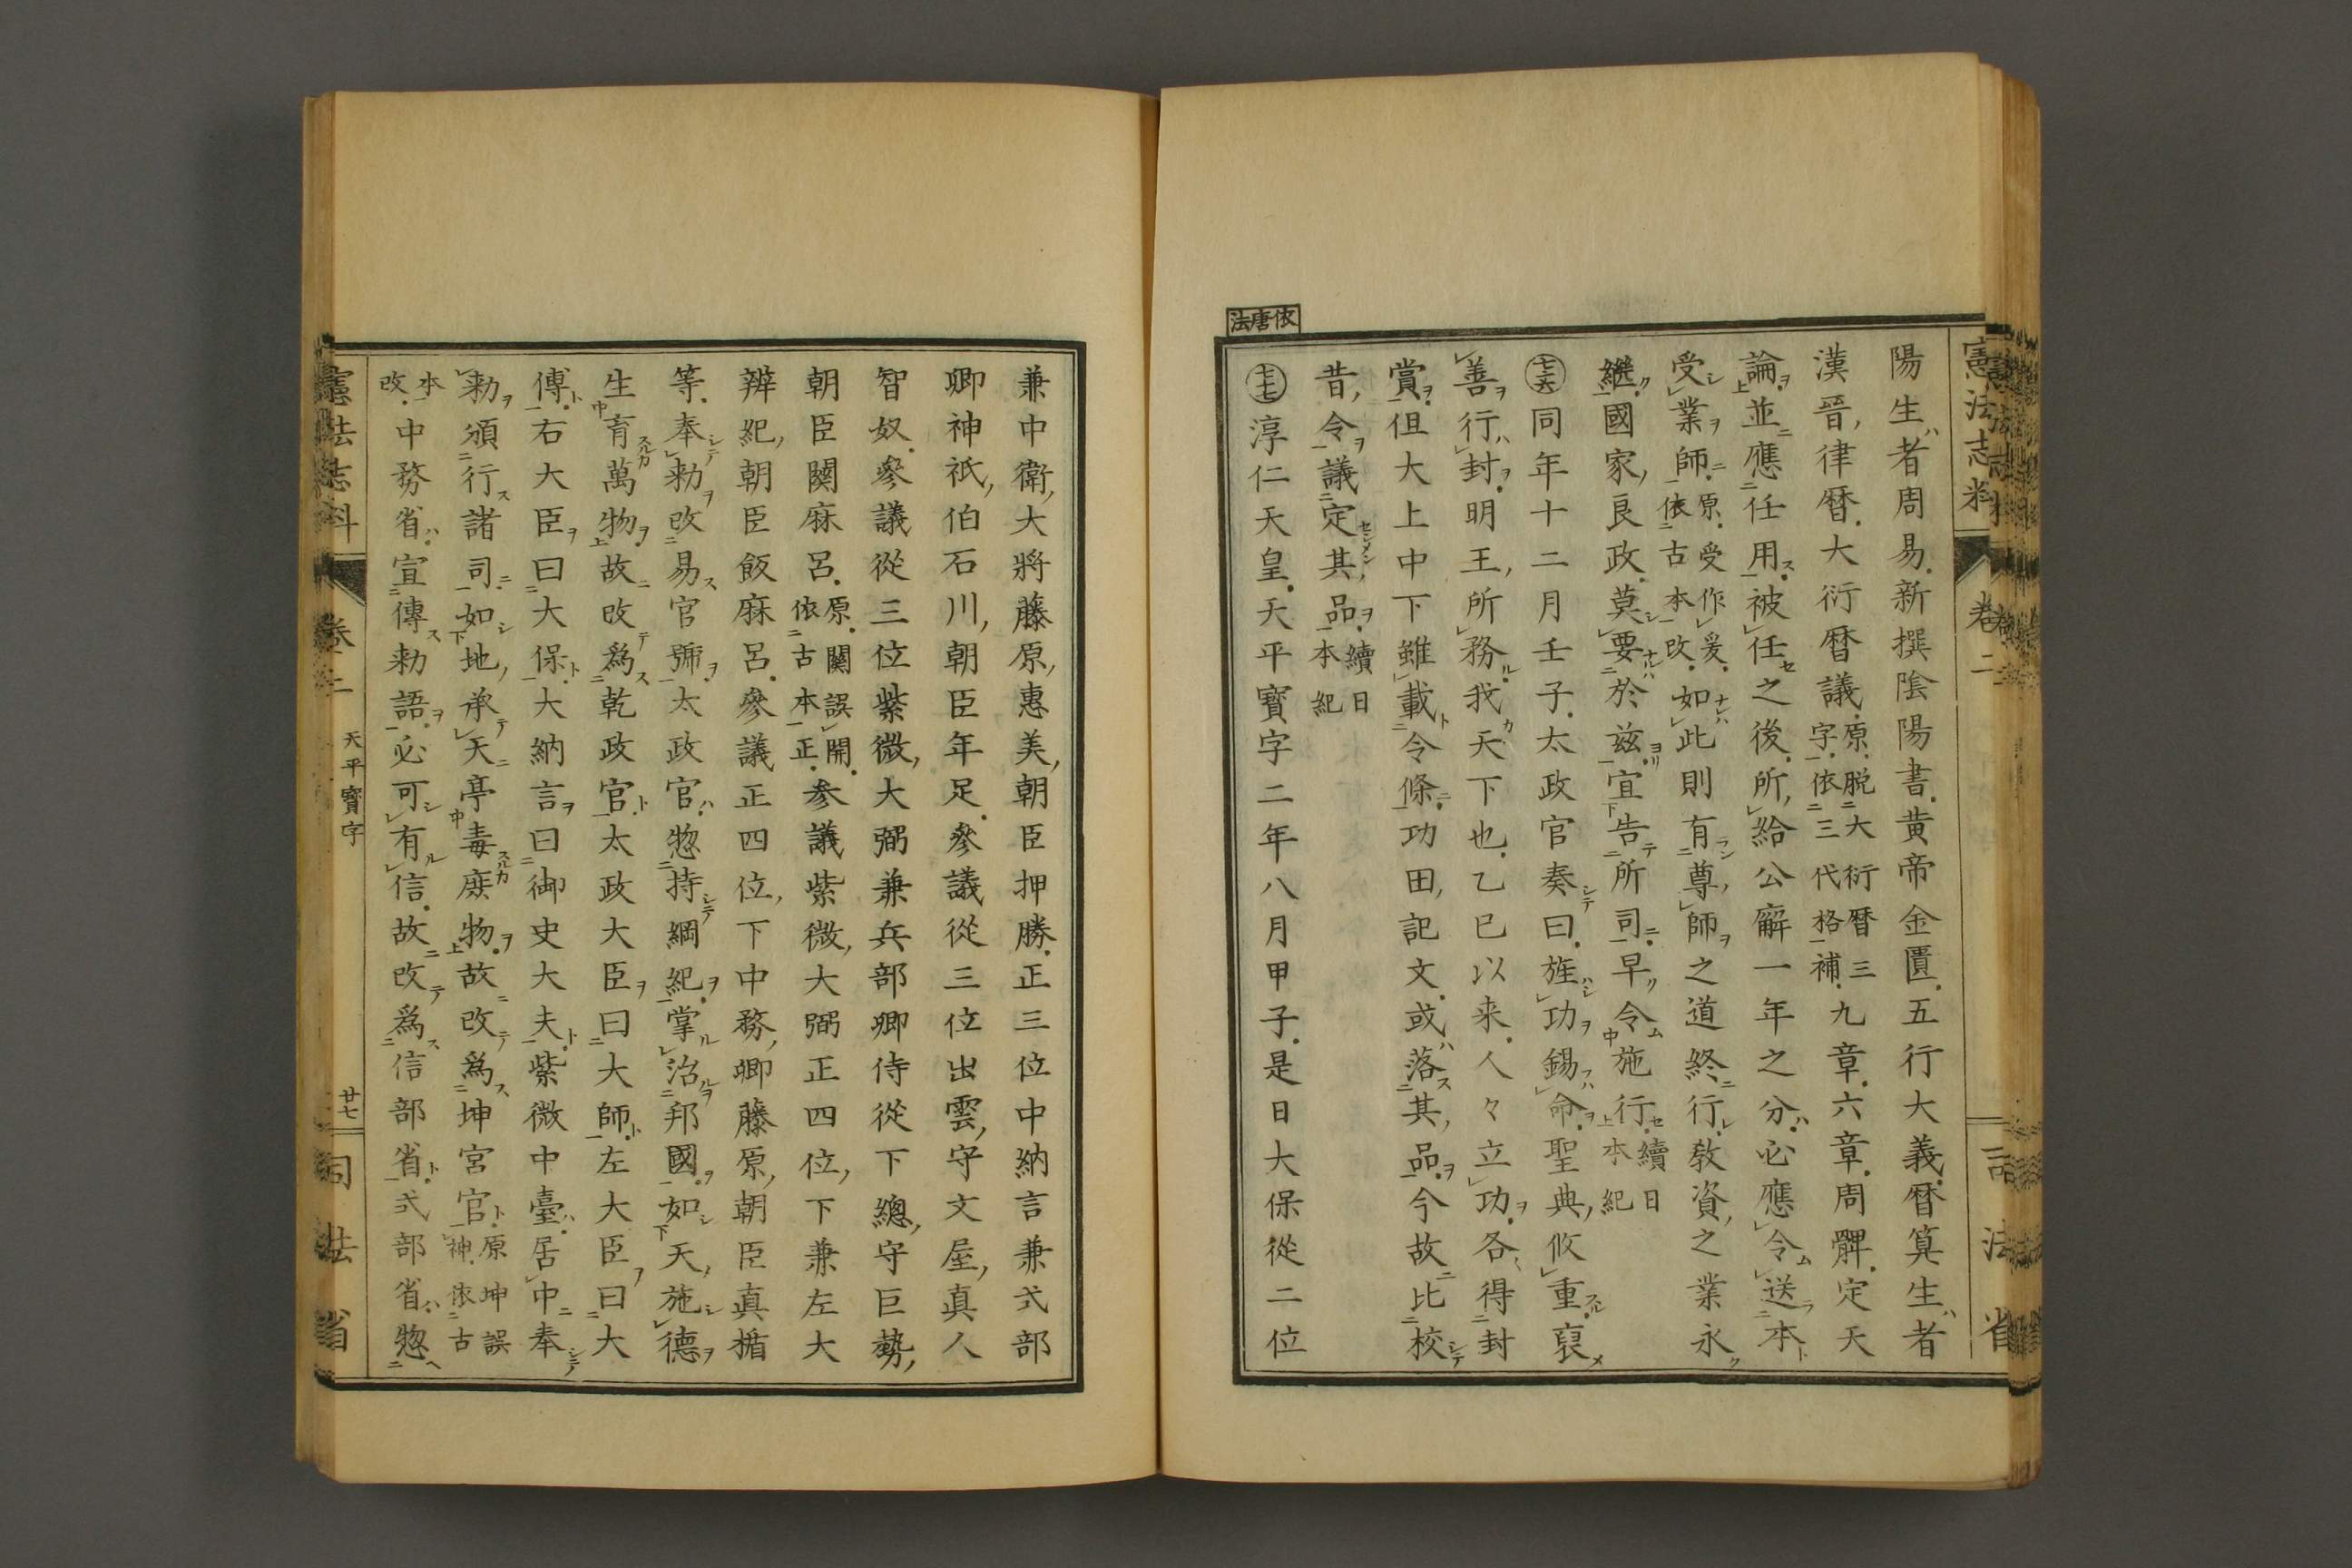 依唐法
陽生者周易新撰陰陽書黃帝金匱五行大義曆算生者
漢晉律曆大衍曆議原脱大衍曆三字依三代格補九章六章周髀定天
論並應任用被任之後所給公廨一年之分必應令送本
受業師原受作爰依古本改如此則有尊師之道終行教資之業永
繼國家良政莫要於茲宜告所司早令施行續日本紀
七六同年十二月壬子太政官奏曰旌功錫命聖典攸重襃
善行封明王所務我天下也乙巳以来人々立功各得封
賞但大上中下雖載令條功田記文或落其品今故比校
昔今議定其品續日本紀
七七淳仁天皇天平寶字二年八月甲子是日大保從二位
憲法志料 卷二 司法省
兼中衛大將藤原惠美朝臣押勝正三位中納言兼式部
卿神祇伯石川朝臣年足參議從三位出雲守文屋真人
智奴參議從三位紫微大弼兼兵部卿侍從下總守巨勢
朝臣関麻呂原関誤開依古本正参議紫微大弼正四位下兼左大
辨紀朝臣飯麻呂參議正四位下中務卿藤原朝臣真楯
等奉勅改易官號太政官惣持綱紀掌治邦國如天施德
生育萬物故改爲乾政官太政大臣曰大師左大臣曰大
傅右大臣曰大保大納言曰御史大夫紫微中臺居中奉
勅頒行諸司如地承天亭毒庶物故改爲坤宮官原坤誤神依古
本改中務省宣傳勅語必可有信故改爲信部省式部省惣
憲法志料 卷二 天平寶字 廿七 司法省